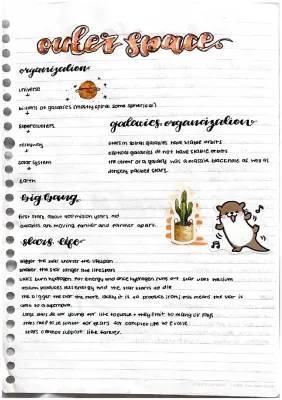 outer space
organization
universe
billions of galaxies (mostly spiral some spherical)
superclusters
galaxies organization
milkyway
stars in spiral galaxies have stable orbits
elliptical galaxies do not have stable orbits
solar system
the center of a galaxy has a massive black hole as well as
densely packed stars
earth
big bang
first stars about 400 million years old
galaxies are moving farther and farther apart
stars life
bigger the star shorter the lifespan
smaller the star longer the lifespan
stars burn hydrogen for energy and once hydrogen runs out star uses helium
helium produces less energy and the star starts to die
the bigger the star the more likely it is to produce iron, this means the star is
to a supernova
large stars die too young for life to evolve + they emit to many uv rays
stars need to be stable for years for complex life to evolve
stars cannot support life forever